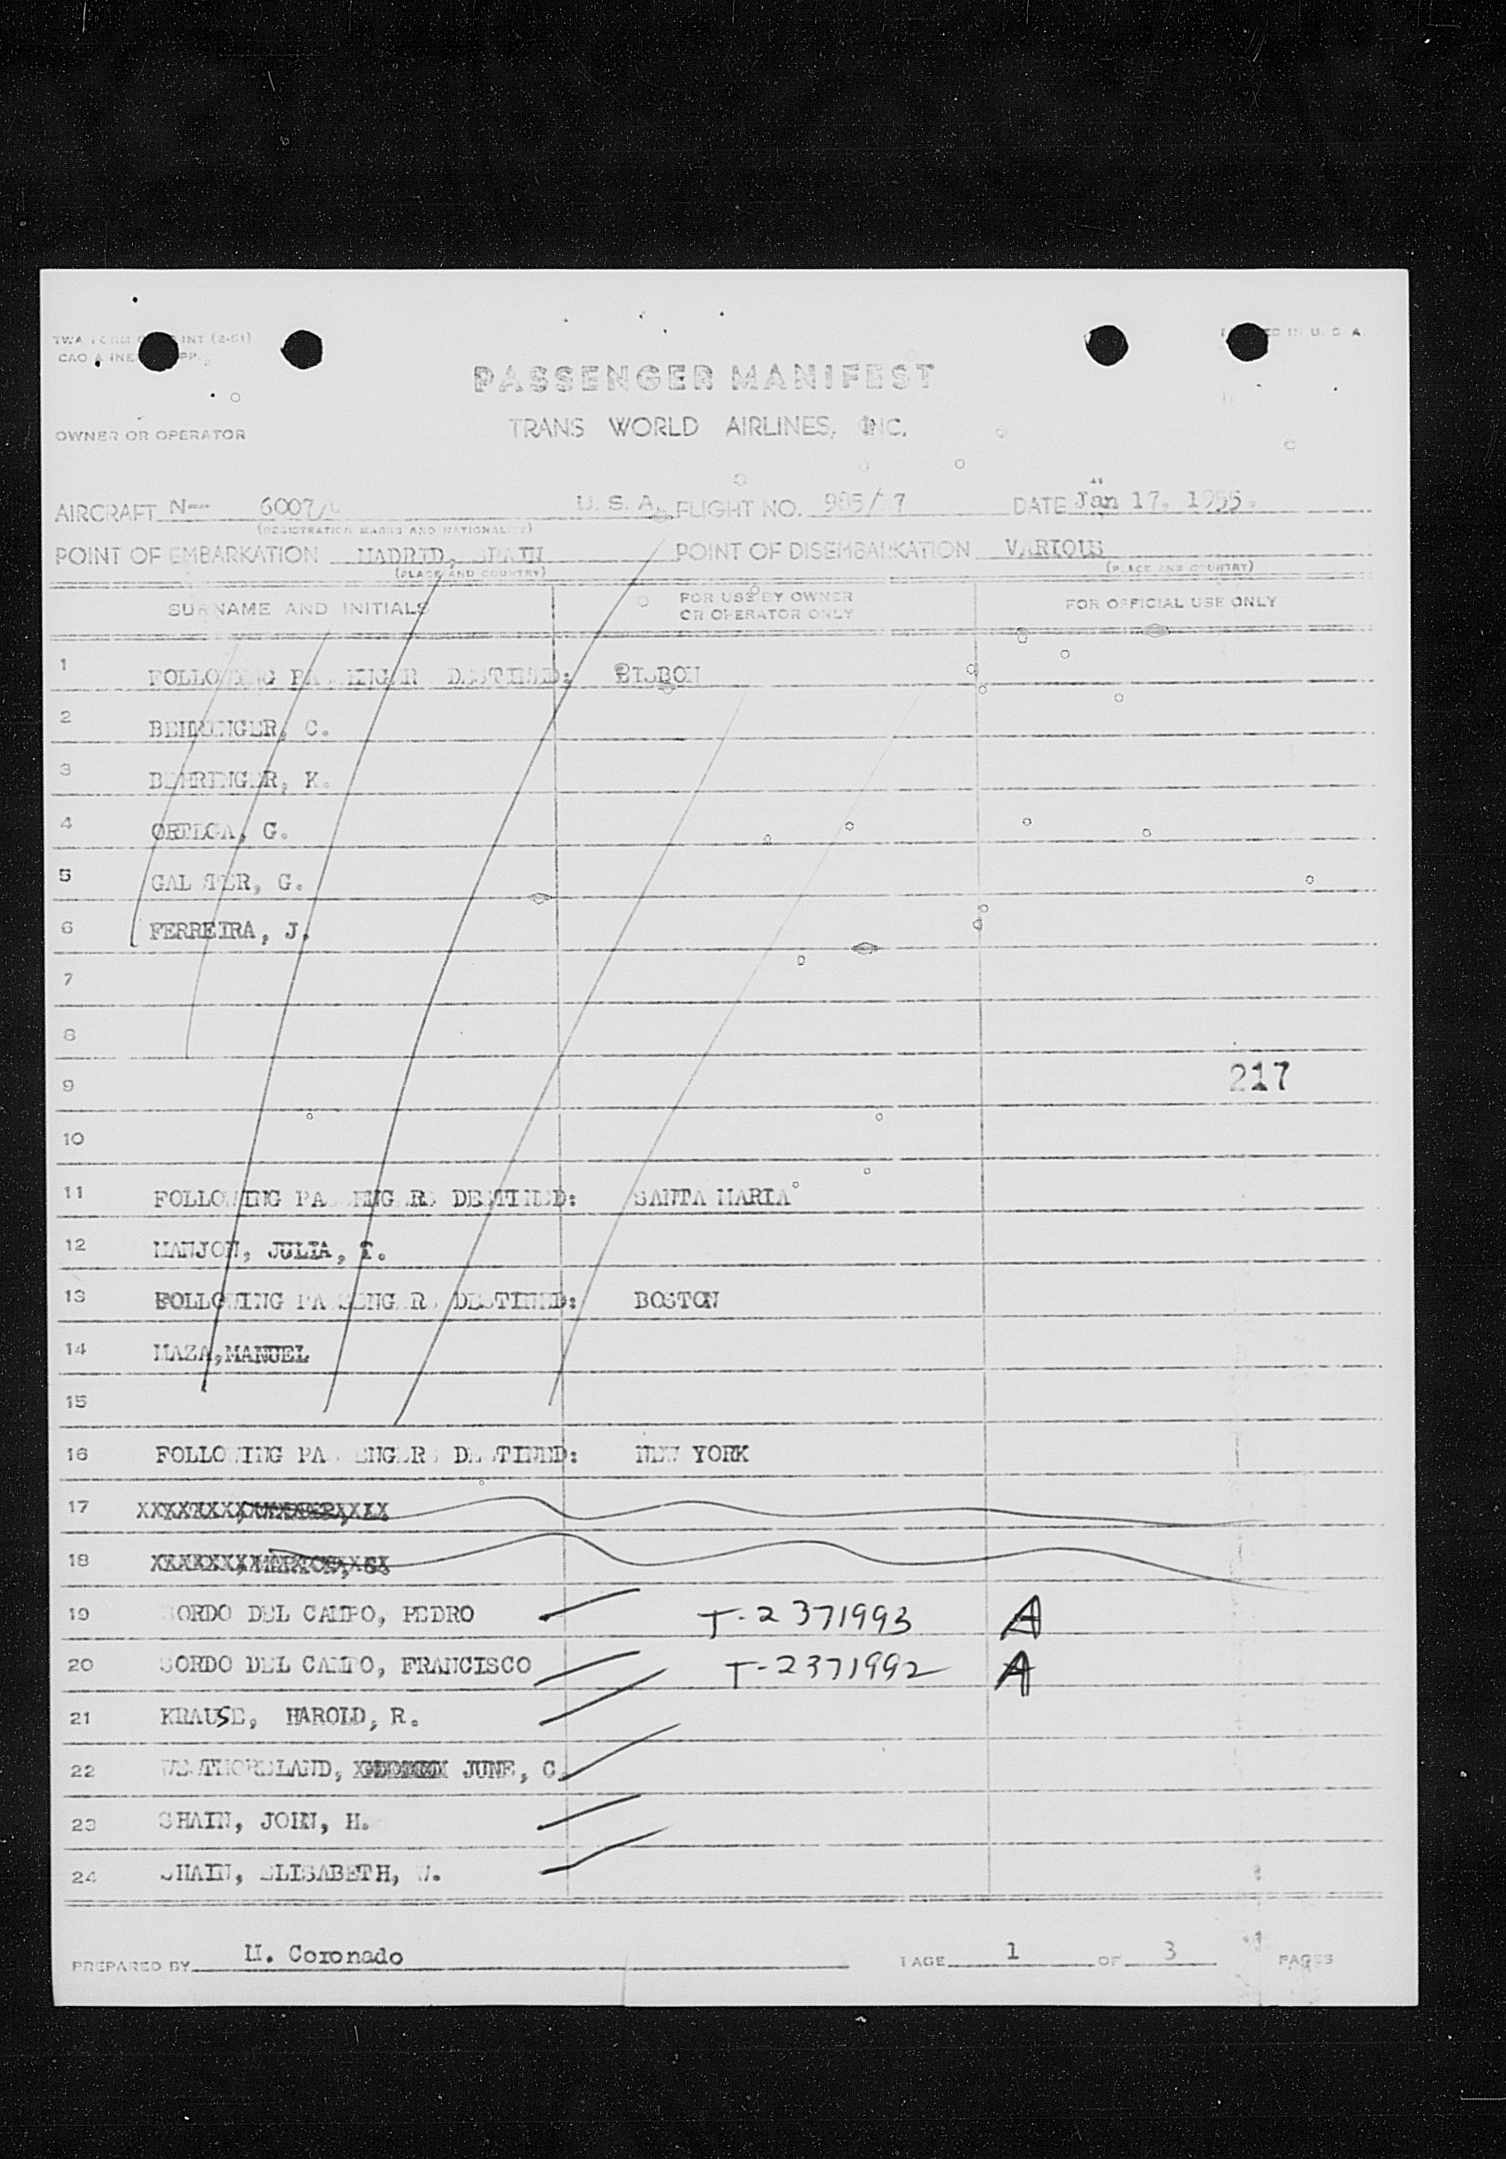 PASSENGER MANIFEST
TRANS WORLD AIRLINES, INC.
OWNER OR OPERATOR
AIRCRAFT N-- 6007/ U. S. A. FLIGHT NO. 905/ 7 DATE Jan 17. 1955.
(REGISTRATION MARKS AND NATIONALITY)
POINT OF EMBARKATION MADRID, SPAIN POINT OF DISEMBARKATION VARIOUS
(PLACE AND COUNTRY) (PLACE AND COUNTRY)
SURNAME AND INITIALS FOR USE BY OWNER OR OPERATOR ONLY FOR OFFICIAL USE ONLY
1 FOLLOWING PASSENGER DESTINED: LISBON
2 BEHRINGER, C.
3 BEHRINGER, K.
4 ORTEGA, G.
5 G.
6 FERREIRA, J.
7
8
9 217
10
11 FOLLOWING PASSENGERS DESTINED: SANTA MARIA
12 MANJON, JULIA, T.
13 FOLLOWING PASSENGERS DESTINED: BOSTON
14 MAZA,MANUEL
15
16 FOLLOWING PASSENGERS DESTINED: NEW YORK
17
18
19 SORDO DEL CAMPO, PEDRO T-2371993 A
20 SORDO DEL CAMPO, FRANCISCO T-2371992 A
21 KRAUSE, HAROLD, R.
22 WESTMORELAND, JUNE, C.
23 SHAIN, JOHN, H.
24 SHAIN, ELISABETH, W.
PREPARED BY M. Coronado PAGE 1 OF 3 PAGES